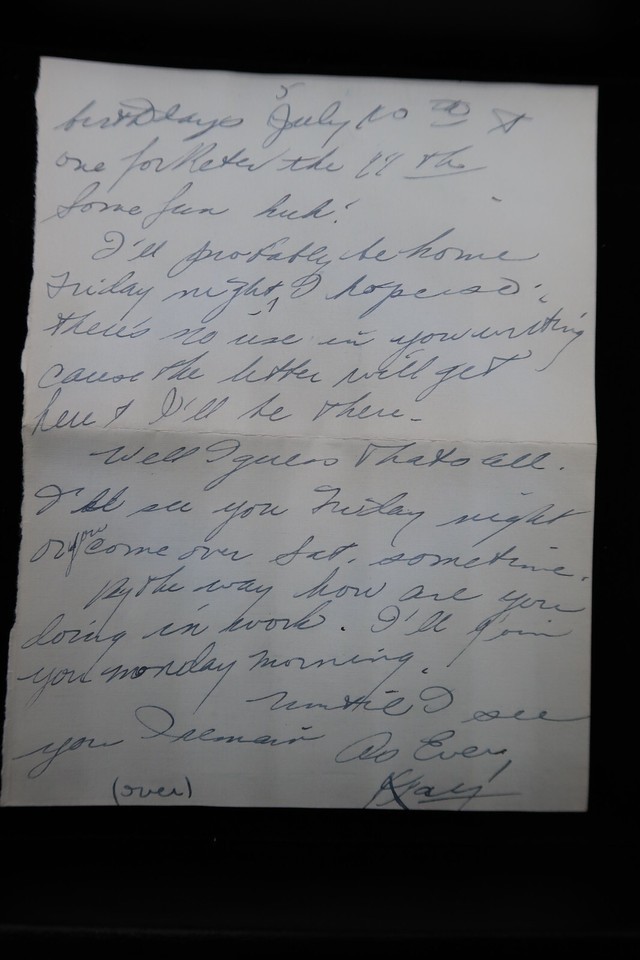 birthdays July 10 th &
one for Peter the 19 th
Some fun huh!
I'll probably be home
Friday night, I hope so.
there's no use in you writing
cause the letter will get
here & I'll be there.
Well I guess thats all.
I'll see you Friday night
or you come over Sat. sometime.
By the way how are you
doing in work. I'll join
you monday morning.
Until I see
you I remain As Ever,
Kay
(over)